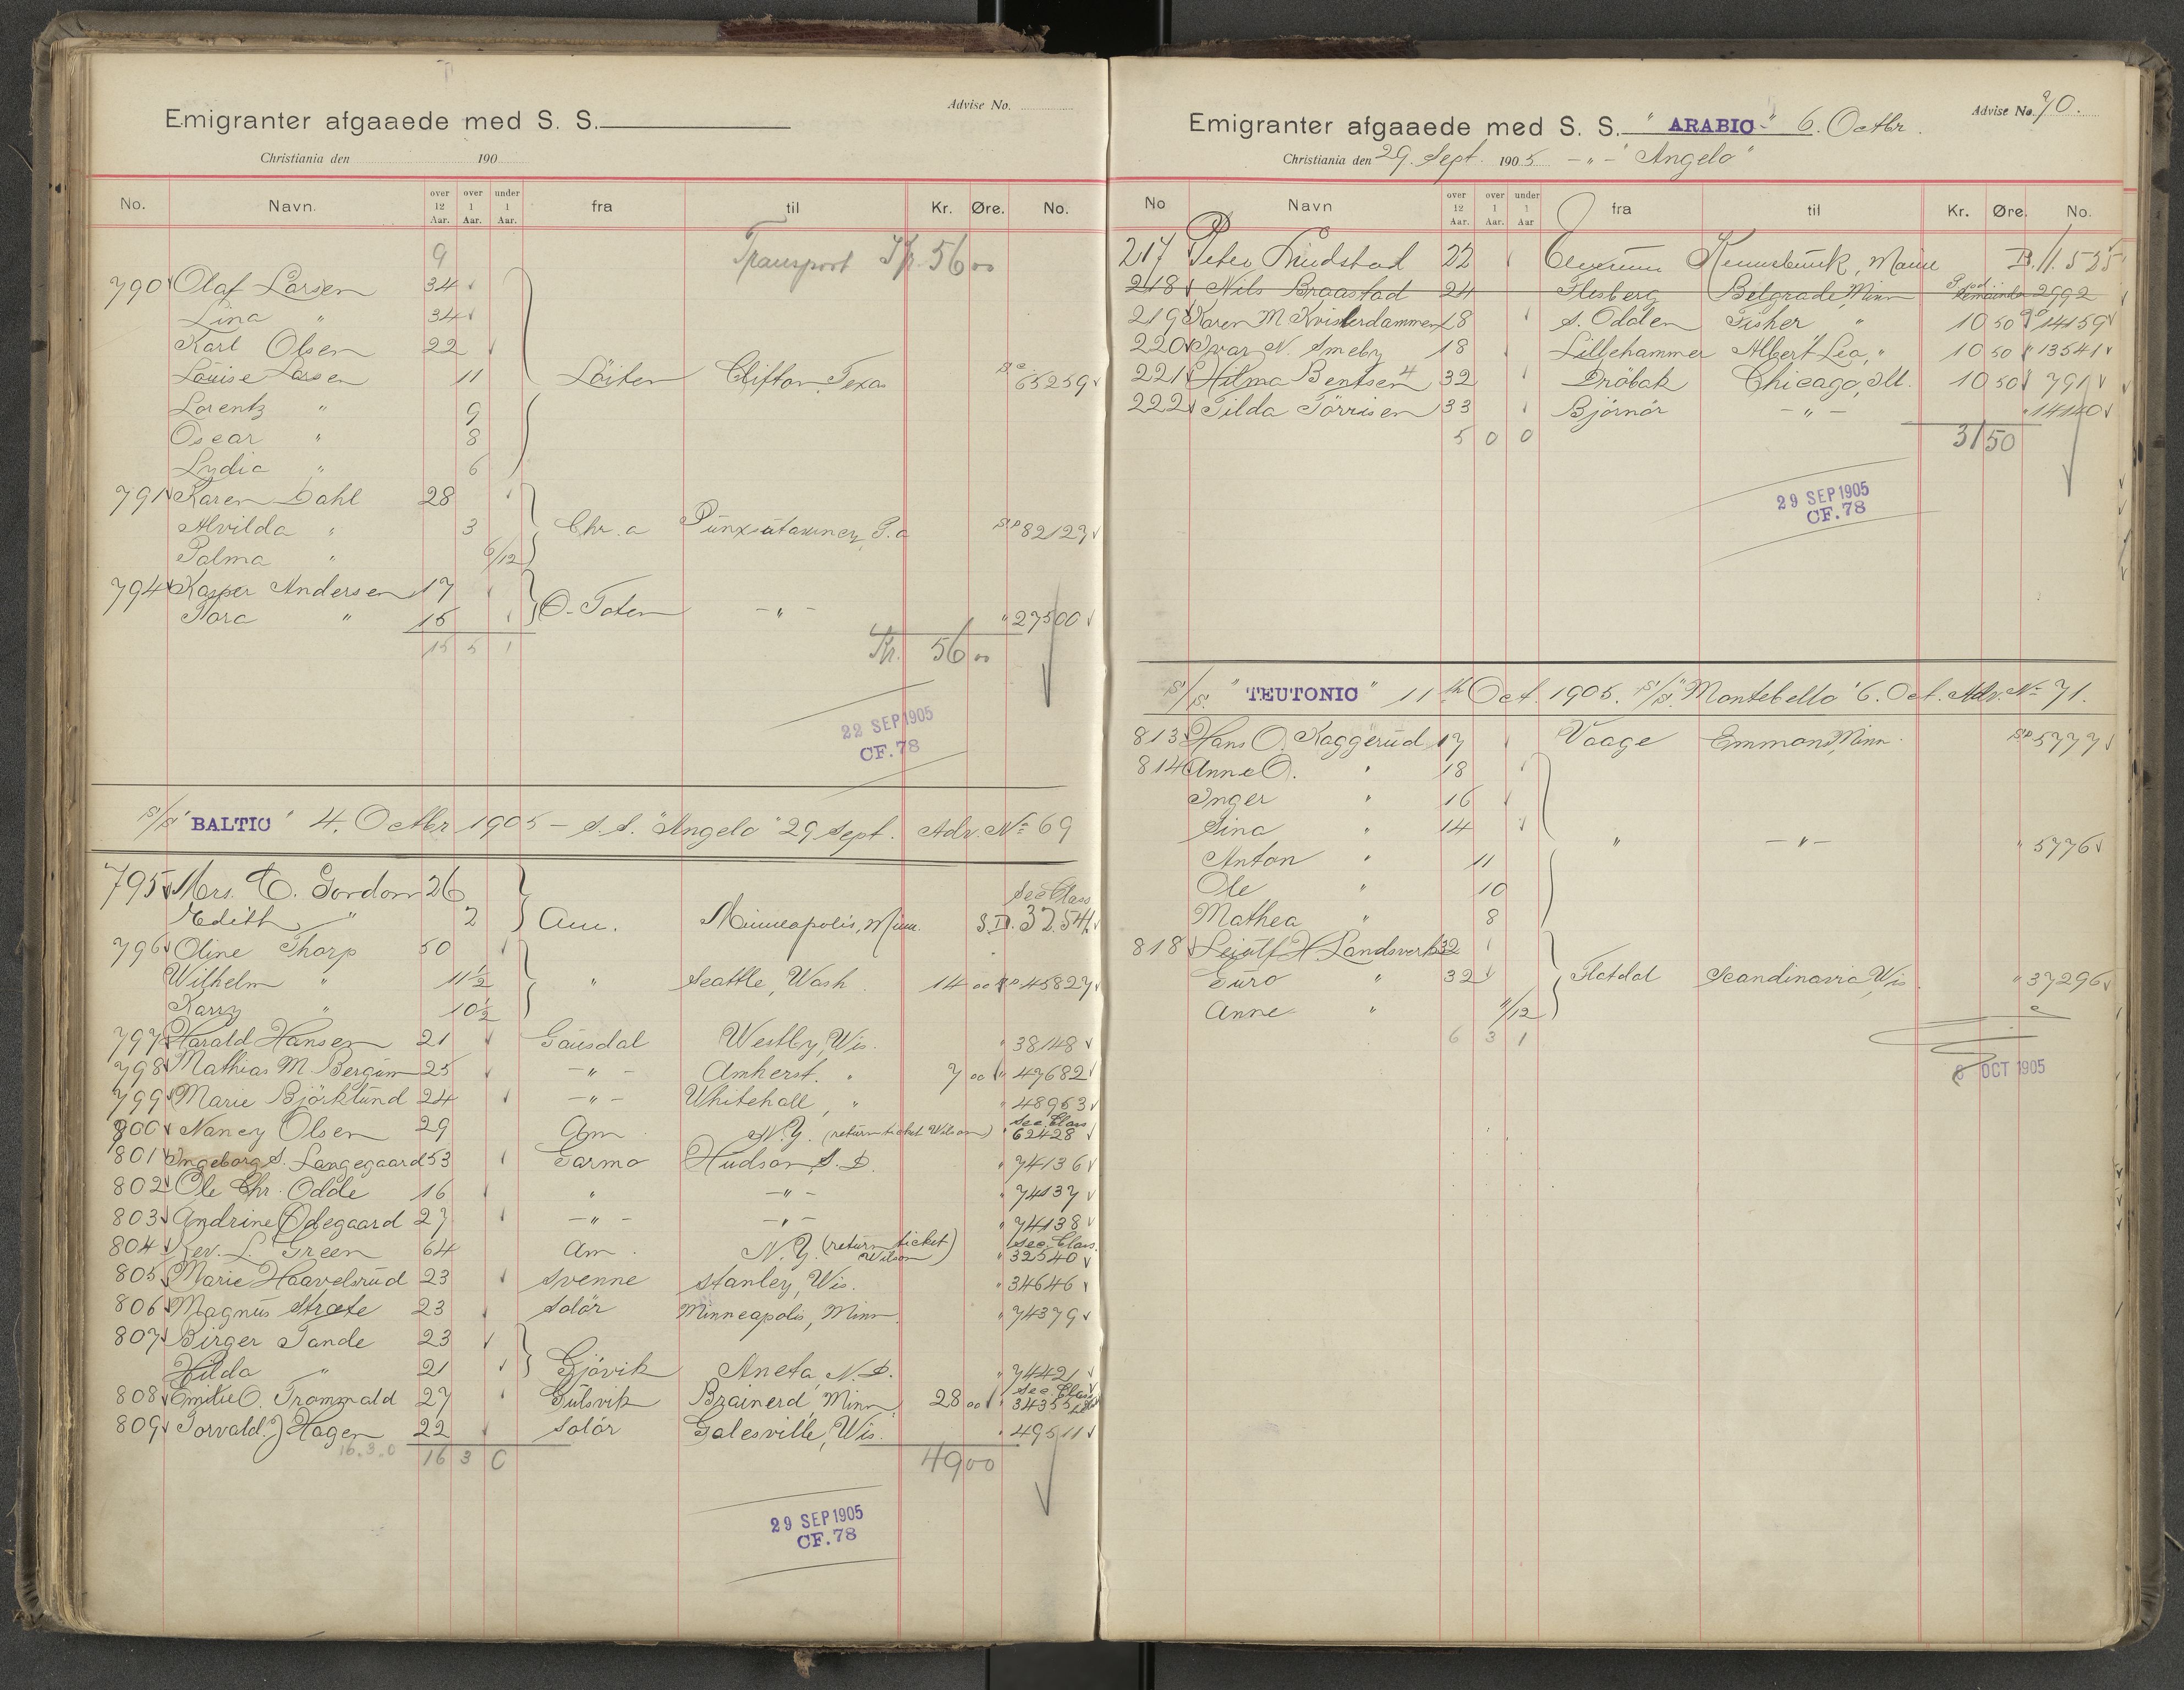 Advise No.
Emigranter afgaaede med S. S.
Christiania den 190
No. Navn. over 12 Aar. over 1 Aar. under 1 Aar. fra til Kr. Øre. No.
9 Transport Kr. 56 00
790 Olaf Larsen 34
Lina " 34
Karl Olsen 22
Louise Larsen 11 Löiten Clifton, Texas 65259
Lorentz " 9
Oscar " 8
Lydia " 6
791 Karen Dahl 28
Alvilda " 3 Chr.a Punxsutawney, P.a 82123
Palma " 6/12
794 Kasper Andersen 17
Tora " 15 O. Toten - " - " 27500
15 5 1 Kr. 56 00
22 SEP 1905
CF. 78
S/S "BALTIC" 4. Octbr 1905 - S.S. "Angelo" 29 Sept. Adv. No 69
795 Mrs. C. Gordon 26 Sec Class
Edith " 2 Am. Minneapolis, Minn. S.D. 32541
796 Oline Thorp 50
Wilhelm " 11½ " Seattle, Wash. 14 00 45827
Harry " 10½
797 Harald Hansen 21 Gausdal Westby, Wis. " 38148
798 Mathias M. Bergum 25 - " - Amherst, " 7 00 " 47682
799 Marie Björklund 24 - " - Whitehall, " " 48963
800 Nancy Olsen 29 Am. N.Y. (return ticket Wilson) " Sec. Class 62428
801 Ingeborg S. Langegaard 53 Garmo Hudson, S. D. " 74136
802 Ole Chr. Odde 16 " - " - " 74137
803 Andrine Ödegaard 27 - " - - " - " 74138
804 Rev. L. Green 64 Am. N.Y. (return ticket Wilson) Sec. Class. " 32540
805 Marie Haavelsrud 23 Svenne Stanley, Wis. " 34646
806 Magnus Stræte 23 Solör Minneapolis, Minn. " 74379
807 Birger Tande 23
Hilda " 21 Gjövik Aneta N. D. " 74421
808 Emilie O. Trommald 27 Gulsvik Brainerd Minn. 28 00 Sec. Class " 34355
809 Torvald J Hagen 22 Solör Galesville, Wis. " 49511
16.3.0 16 3 0 49 00
29 SEP 1905
CF. 78
Advise No. 70.
Emigranter afgaaede med S. S. "ARABIC" 6. Octbr.
Christiania den 29. Sept. 1905 - " - "Angelo"
No Navn over 12 Aar. over 1 Aar. under 1 Aar fra til Kr. Øre. No.
217 Peter Lundstad 22 Elverum Kennebunk, Maine B. 11.525
218 Nils Braastad 24 Flesberg Belgrade, Minn 2992
219 Karen M Kvisterdammen 18 S. Odden Fisher " 10 50 14159
220 Ivar N. Smeby 18 Lillehammer Albert Lea, " 10 50 " 13541
221 Hilma Bentsen 32 Dröbak Chicago, Ill. 10 50 " 791
222 Tilda Törrisen 33 Björnör - " - " 14140
5 0 0 31 50
29 SEP 1905
CF. 78
S/S. "TEUTONIC" 11th Oct. 1905. S/S. "Montebello" 6. Oct. Adv. No 71.
813 Hans O. Kaggerud 17 Vaage Emmons, Minn. 5777
814 Anne O. " 18
Inger " 16
Sina " 14
" - " - " 5776
Anton " 11
Ole " 10
Mathea " 8
818 Leiulf H. Landsverk 32
Guro " 32 Flatdal Scandinavia, Wis " 37296
Anne " 11/12
6 3 1
6 OCT 1905